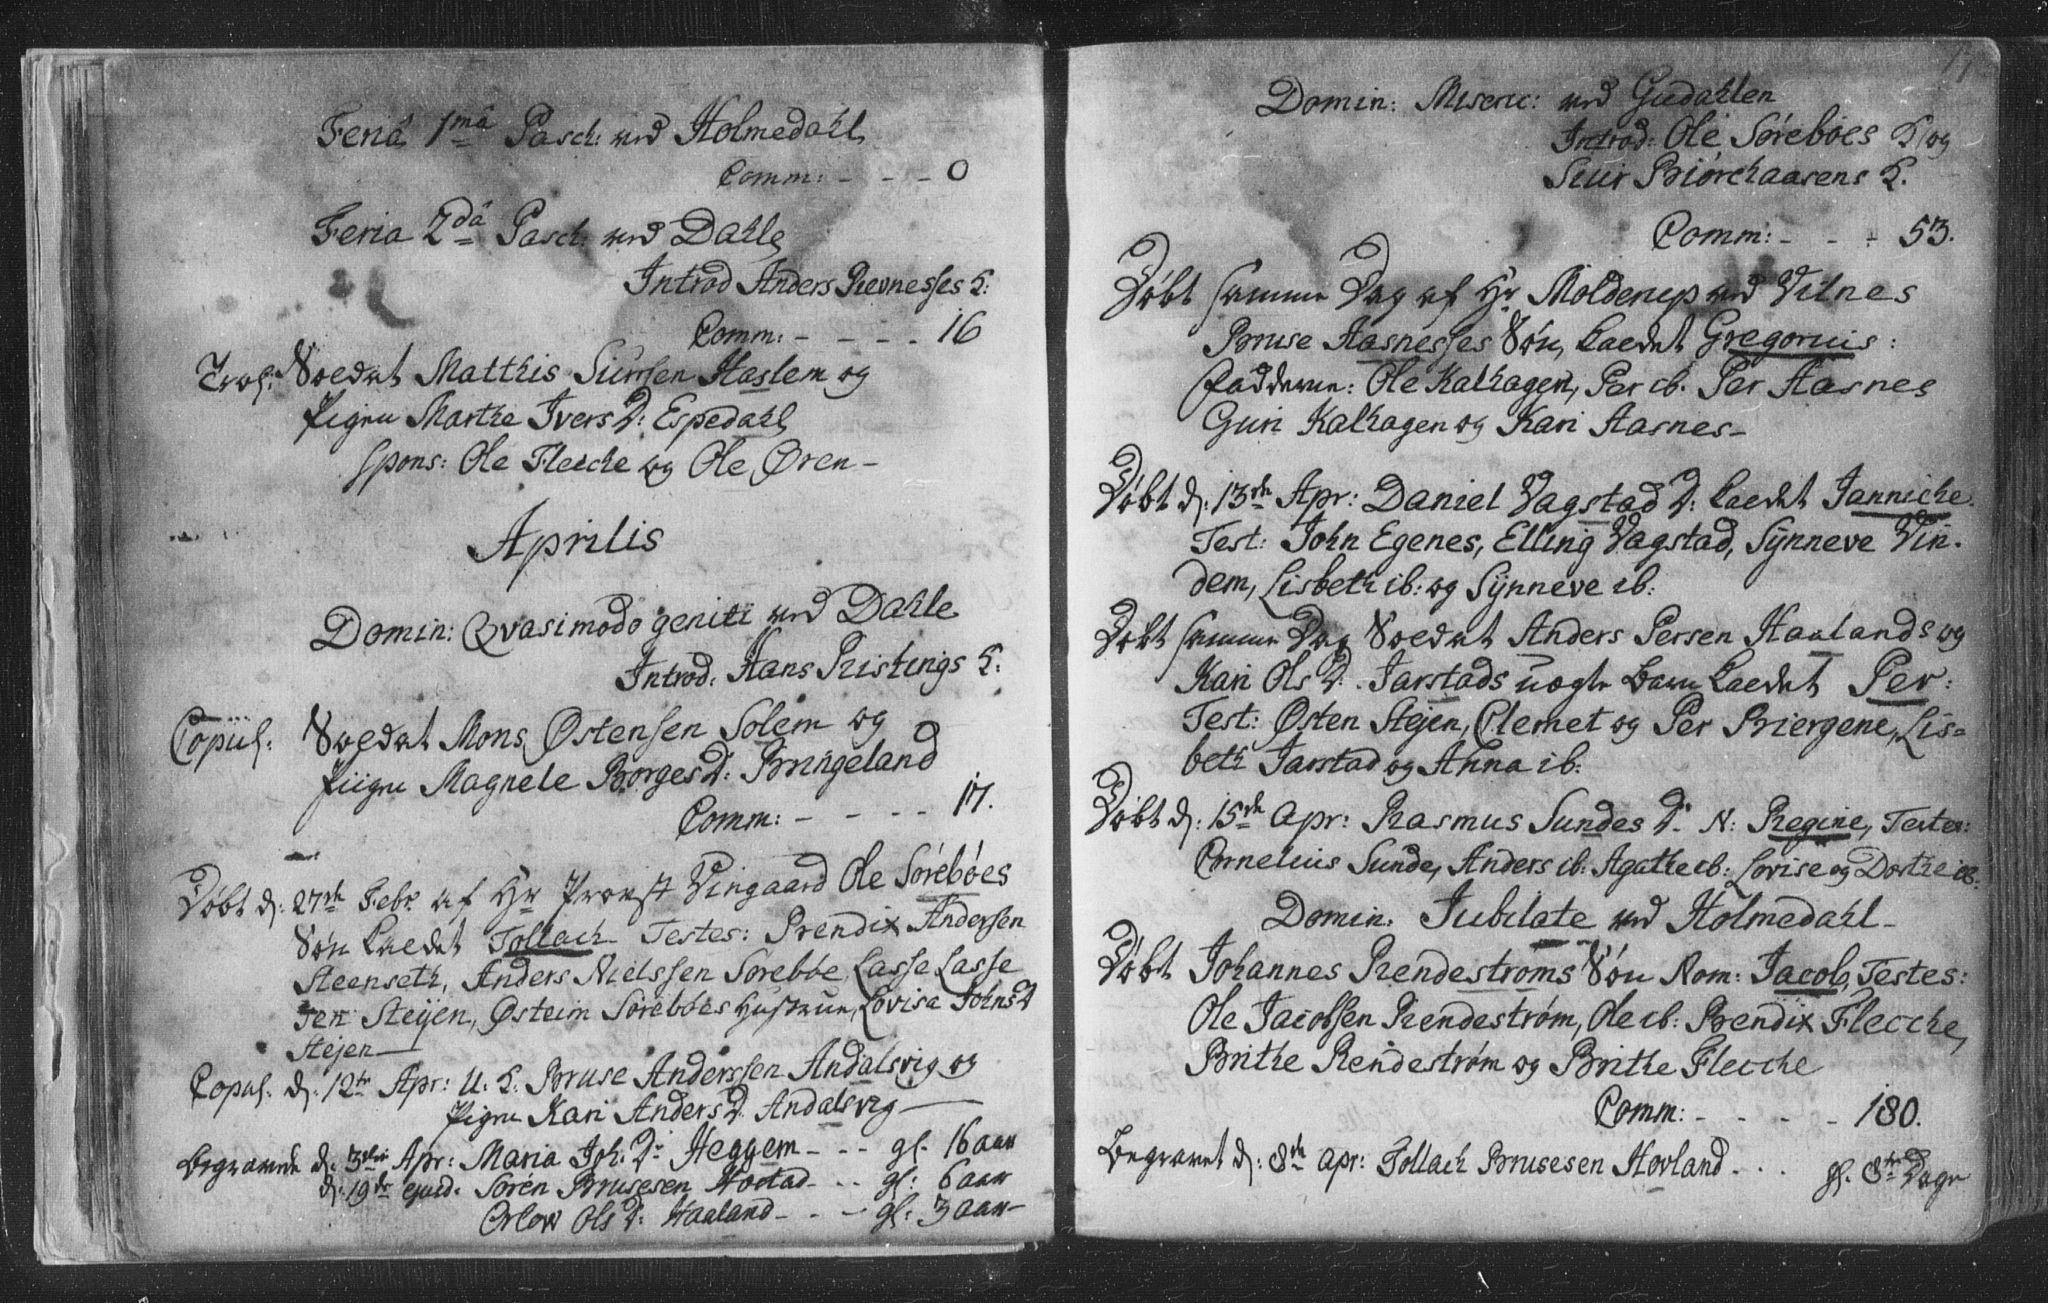 Feriâ 1mâ Pasch: ved Holmedahl
Comm: - - - 0
Feria 2dâ Pasch: ved Dahle
Introd Anders Revnesses K:
Comm: - - - - 16
Trol: Soldat Matthis Siursen Haslem og
Pigen Marthe Ivers D: Espedahl
Spons: Ole Flecke og Ole Øren -
Aprilis
Domin: Qvasimodo geniti ved Dahle
Introd. Hans Ristings K:
Copul: Soldat Mons Østensen Solem og
Piigen Magnele Borges D: Bringeland
Comm: - - - - 17.
Døbt d: 27de Febr. af Hr Provst Vingaard Ole Sørebøes
Søn kaldet Tollach Testes: Brendix Andersen
Steenseth, Anders Nielssen Sørebøe Lasse Lasse
sen Steijen, Østein Sørebøes Hustrue, Lovisa JohnsD
Stejen
Copul. d: 12te Apr: U. K. Bruse Anderssen Andalsvig og
Pigen Kari Anders D. Andalsvig
Begravede d: 3die Apr: Maria Joh: D: Heggem - - - gl. 16 aar
d: 19de ejusd. Søren Brusesen Hovstad - - - gl: 6 aar
Orlow Ols D: Haaland - - - gl: 3 aar
17
Domin: Miseric: ved Gudahlen
Introd: Ole Sørebøes K og
Siur Biørchaasens K.
Comm: - - - 53.
Døbt samme Dag af Hr Molderup ved Vilnes
Bruse Aasnesses Søn, kaldet Gregorius:
Fadderne: Ole Kalhagen, Per ib. Per Aasnes
Guri Kalhagen og Kari Aasnes -
Døbt d: 13de Apr: Daniel Vagstad D: kaldet Jannicke
Test: John Egenes, Elling Vagstad, Synneve Vin-
dem, Lisbeth ib: og Synneve ib:
Døbt samme Dag Soldat Anders Persen Haalands og
Kari Ols D. Jarstads uægte barn kaldet Per:
Test: Østen Stejen, Clemet og Per Biergene, Lis=
beth Jarstad og Anna ib:
Døbt d: 15de Apr: Rasmus Sundes D. N: Regine, Testes:
Cornelius Sunde, Anders ib: Agathe ib: Lovise og Dorthe ib:
Domin: Jubilate ved Holmedahl -
Døbt Johannes Rendestroms Søn Nom: Jacob, Testes:
Ole Jacobsen Rendestrøm, Ole ib: Brendix Flecke,
Brithe Rendestrøm og Brithe Flecke
Comm: - - - - 180.
Begravet d: 8de Apr: Tollach Brusesen Hovland - - - gl. 8te Dage